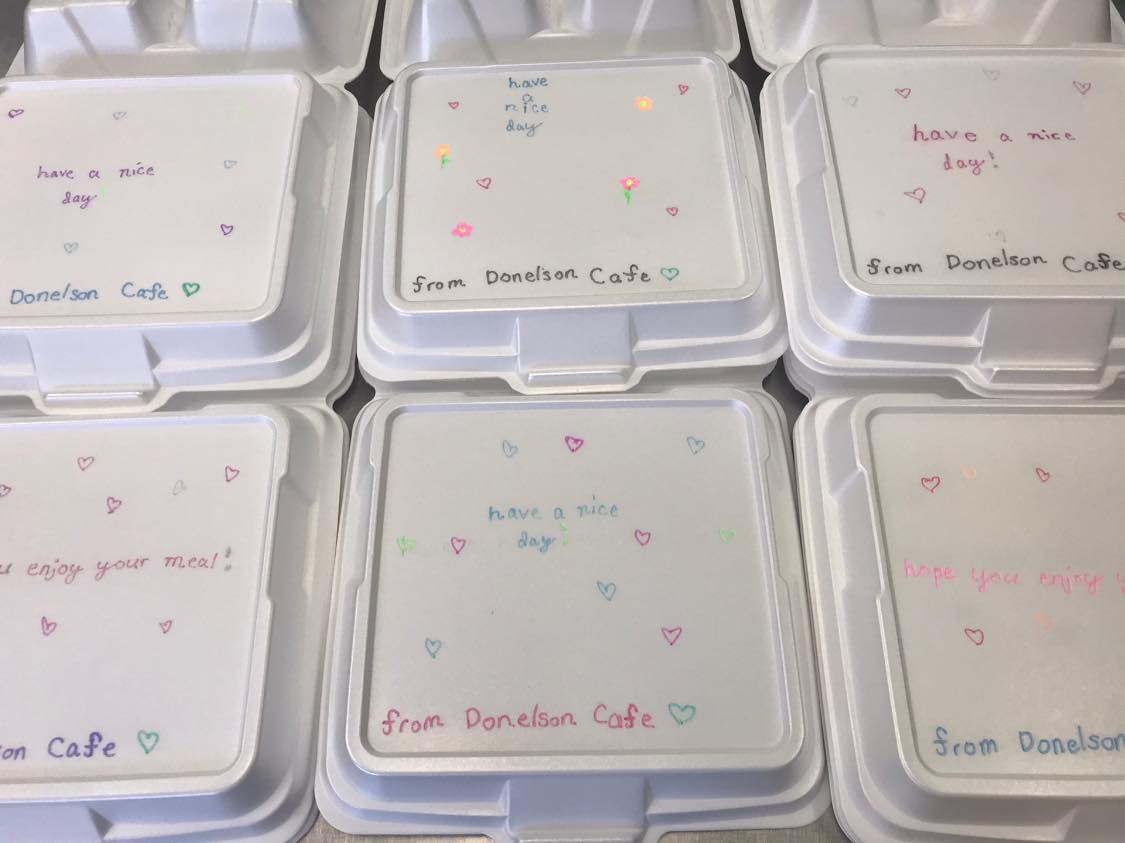 have a nice
day
Donelson Cafe
have
a
nice
day
from Donelson Cafe
have a nice
day!
from Donelson Cafe
enjoy your meal!
Cafe
have a nice
day!
from Donelson Cafe
hope you enjoy
from Donelson